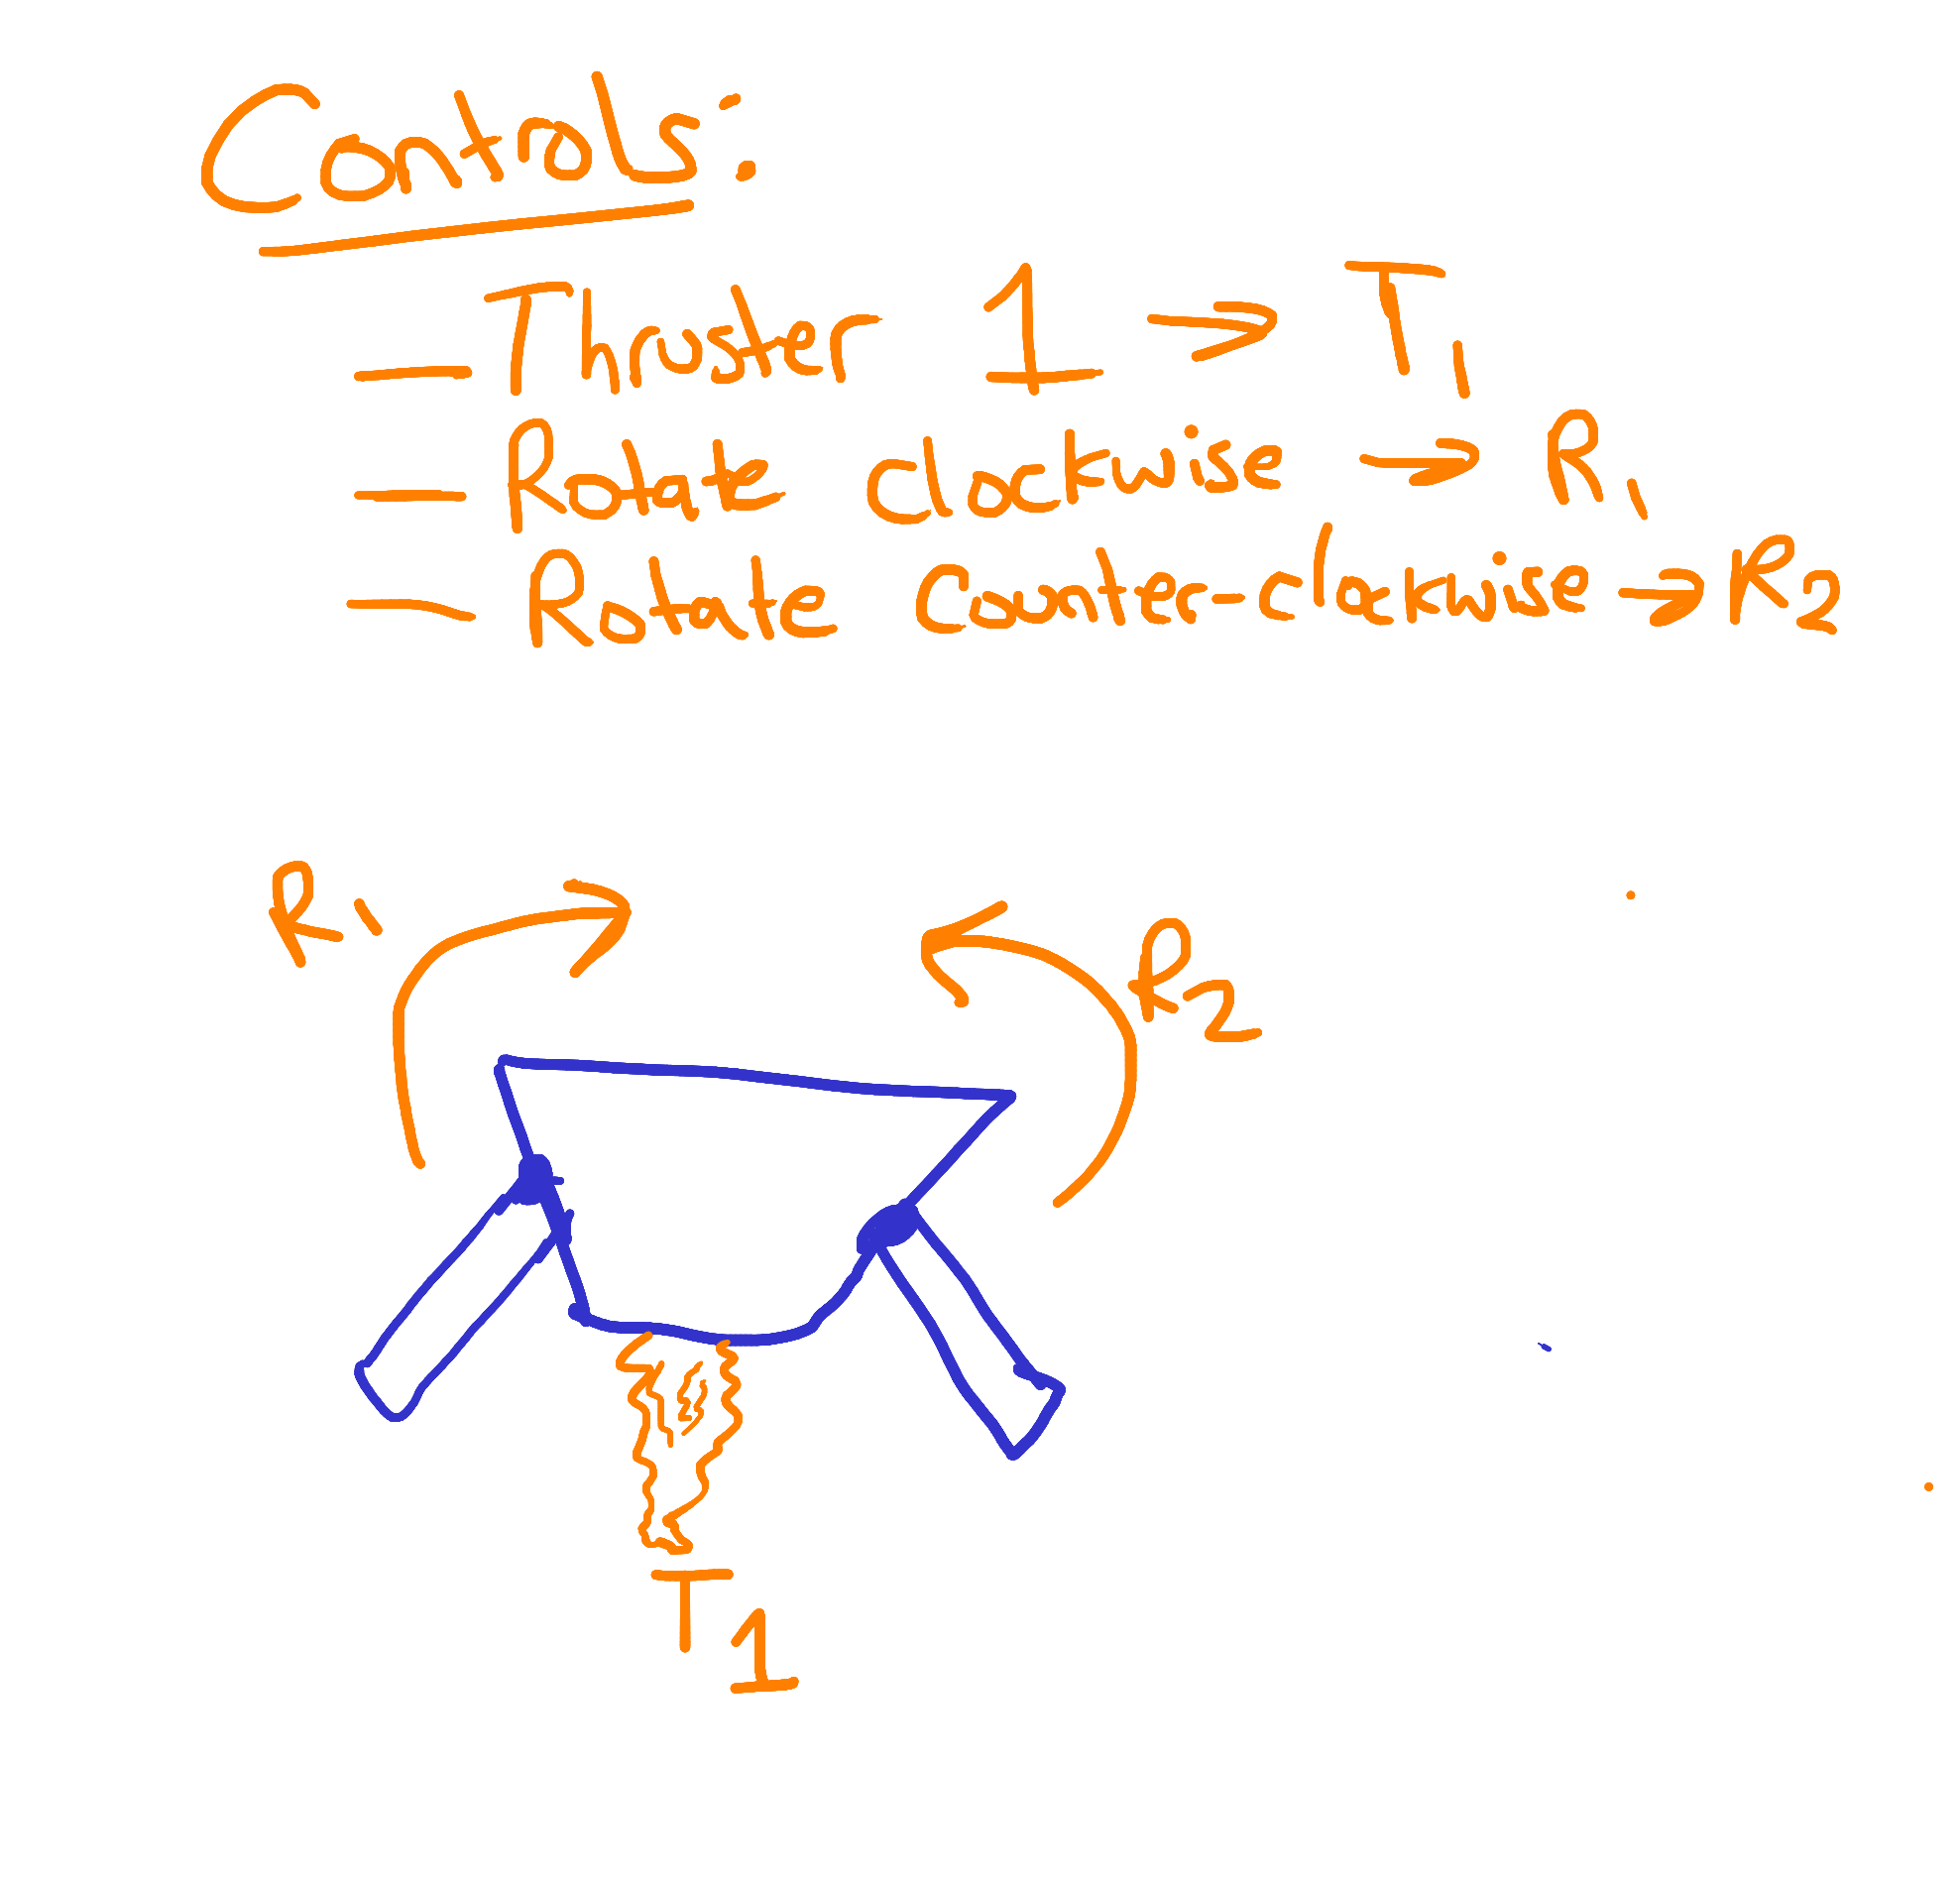 Controls:
- Thruster 1 → T₁
- Rotate clockwise → R₁
- Rotate Counter-clockwise → R₂
R₁
R₂
T₁